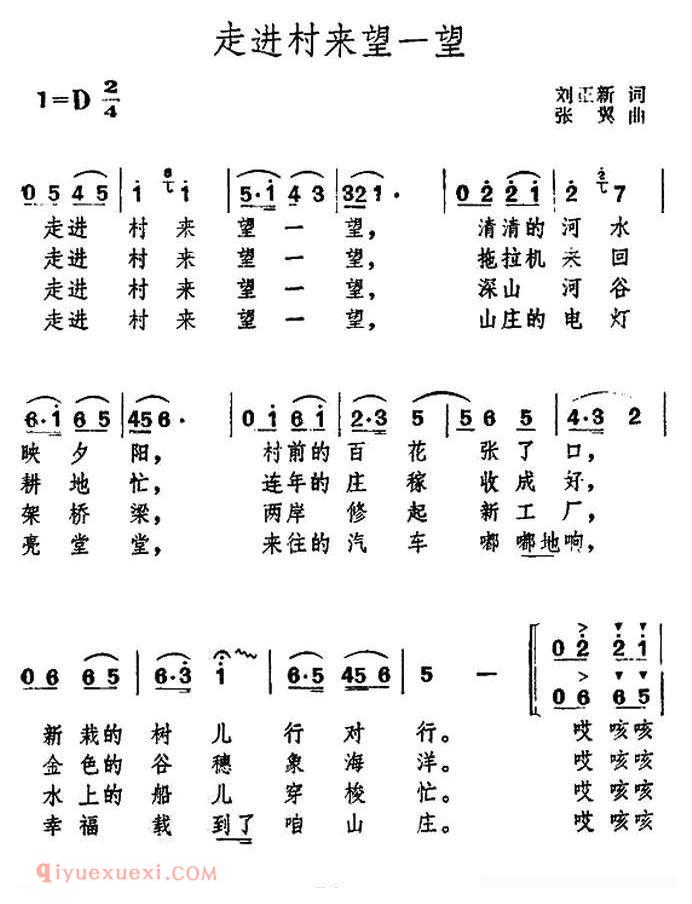 走进村来望一望
1=D 2/4
刘正新 词
张翼 曲
0 5 4 5 | 1 1 | 5·1 4 3 | 321· | 0 2 2 1 | 2 7 |
走进 村来 望一望, 清清的河水
走进 村来 望一望, 拖拉机来回
走进 村来 望一望, 深山河谷
走进 村来 望一望, 山庄的电灯
6·1 6 5 | 456· | 0 1 6 1 | 2·3 5 | 5 6 5 | 4·3 2 |
映夕阳, 村前的百花张了口,
耕地忙, 连年的庄稼收成好,
架桥梁, 两岸修起新工厂,
亮堂堂, 来往的汽车嘟嘟地响,
0 6 6 5 | 6·3 1 | 6·5 45 6 | 5 — | 0 2 2 1 |
0 6 6 5
新栽的树儿行对行。 哎咳咳
金色的谷穗象海洋。 哎咳咳
水上的船儿穿梭忙。 哎咳咳
幸福载到了咱山庄。 哎咳咳
qiyuexuexi.com